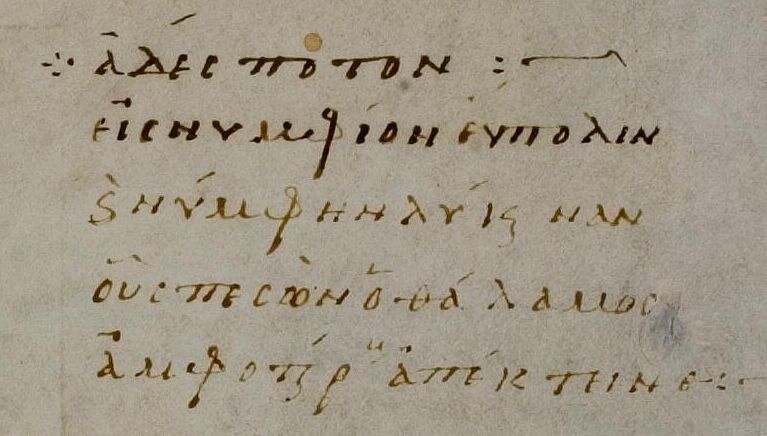 ⁘ ἀδέσποτον :~
εἰς νυμφίον εὔπολιν
ϗ νύμφην λύϗναν
οὓς πεσὼν ὁ θάλαμος
ἀμφοτέρους ἀπέκτεινε :~